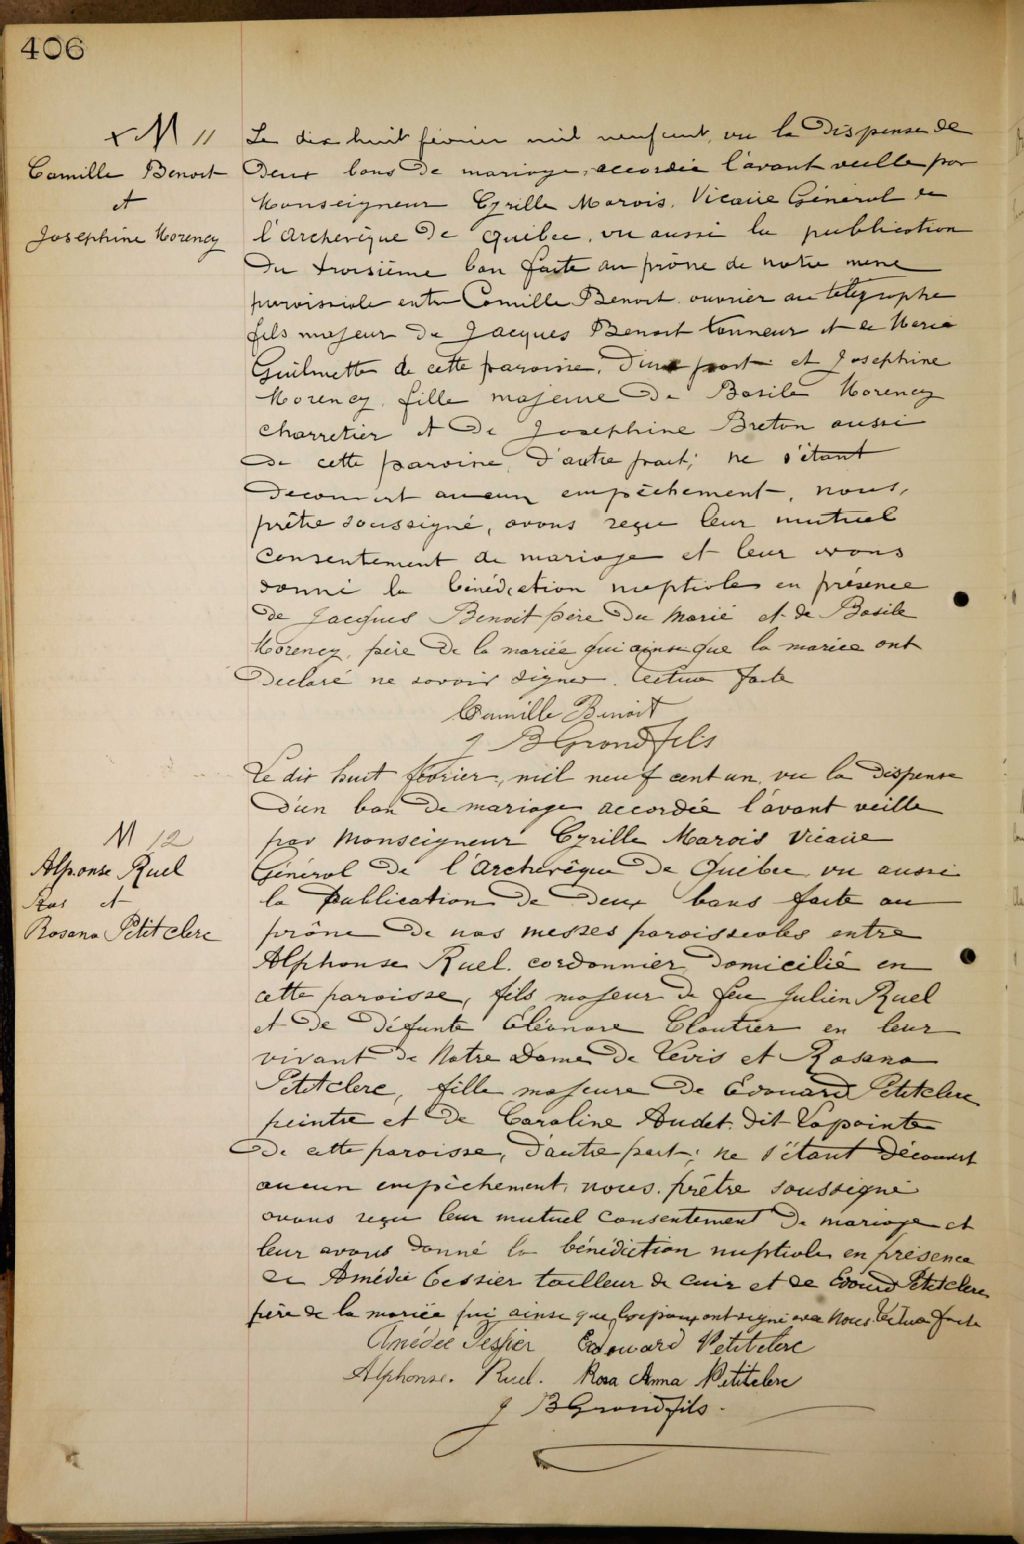 406
x M 11
Camille Benoit
et
Josephine Morency
Le dix huit février mil neuf cent, vu la Dispense de
Deux bans De mariage, accordée l'avant veille par
Monseigneur Cyrille Marois, Vicaire Général de
l'Archevêque De Québec, vu aussi la publication
Du troisième ban faite au prône de notre messe
paroissiale entre Camille Benoit ouvrier au télégraphe
fils majeur De Jacques Benoit tanneur et de Marie
Guilmette de cette paroisse, D'une part et Josephine
Morency, fille majeure De Basile Morency
charretier et De Josephine Breton aussi
De cette paroisse, D'autre part; ne s'étant
Decouvert aucun empêchement, nous,
prêtre soussigné, avons reçu leur mutuel
consentement de mariage et leur avons
donné la bénédiction nuptiale en présence
De Jacques Benoit père Du Marié et de Basile
Morency, père De la mariée qui ainsi que la mariée ont
Declaré ne savoir signer. Lecture faite
Camille Benoit
J B Grondfils
M 12
Alphonse Ruel
et
Rosana Petitclerc
Le dix huit février, mil neuf cent un, vu la Dispense
D'un ban De mariage accordée l'avant veille
par Monseigneur Cyrille Marois Vicaire
Général De l'Archevêque De Québec vu aussi
la Publication De Deux bans faite au
prône De nos messes paroissiales entre
Alphonse Ruel, cordonnier Domicilié en
cette paroisse, fils majeur de feu Julien Ruel
et De Défunte Éléonore Cloutier en leur
vivant De Notre Dame De Levis et Rosana
Petitclerc, fille majeure De Edouard Petitclerc
peintre et De Caroline Audet dit Lapointe
De cette paroisse, D'autre part; ne s'étant Découvert
aucun empêchement, nous, prêtre soussigné
avons reçu leur mutuel consentement De mariage et
leur avons Donné la bénédiction nuptiale en présence
de Amédée Tessier tailleur de cuir et de Edouard Petitclerc
père de la mariée qui ainsi que les époux ont signé avec Nous. Lecture faite
Amédée Tessier Edouard Petitclerc
Alphonse. Ruel. Rosa Anna Petitclerc
J B Grondfils.